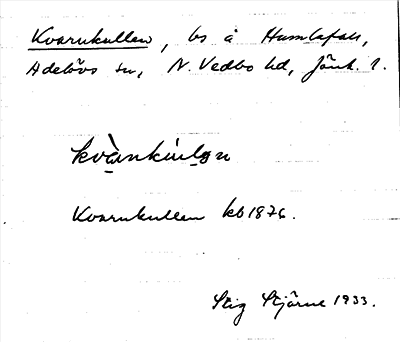 Kvarnkullen, bs å Humlafall,
Adelövs sn, N. Vedbo hd, Jönk. l.
kvànkúlən
Kvarnkullen kb 1876.
Stig Stjärne 1933.